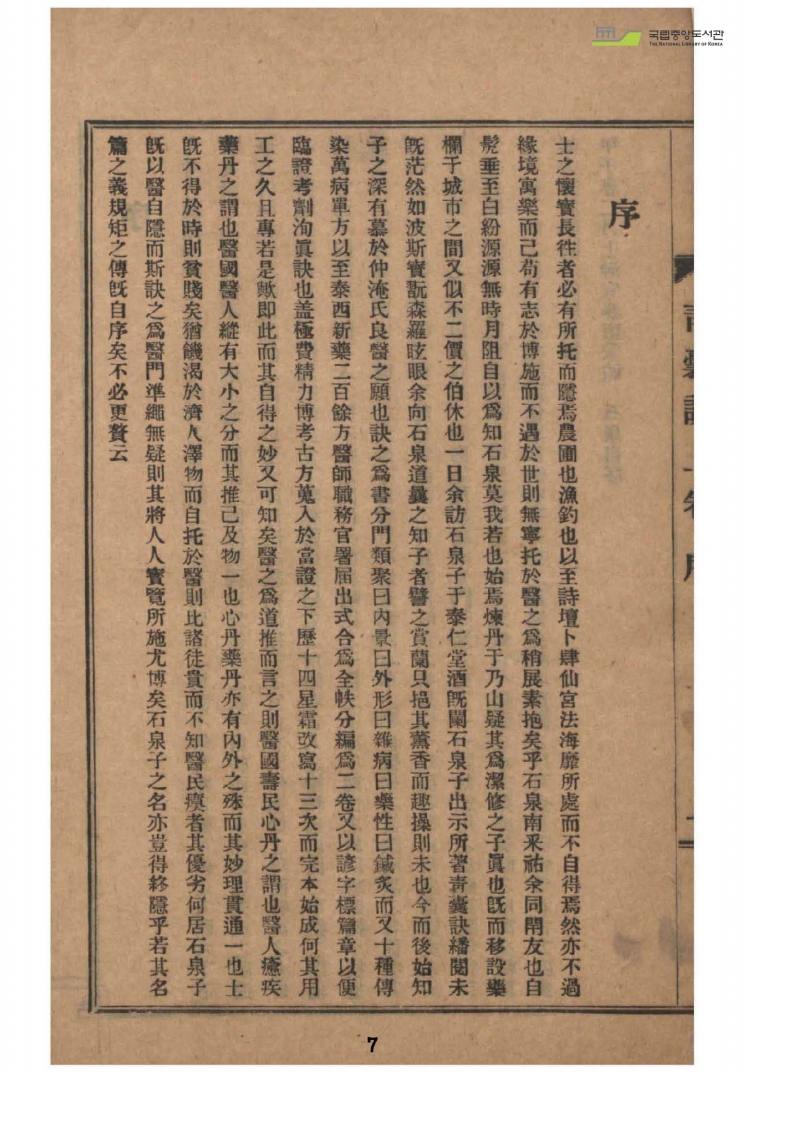 국립중앙도서관
THE NATIONAL LIBRARY OF KOREA
序
士之懷寶長徃者必有所托而隱焉農圃也漁釣也以至詩壇卜肆仙宮法海靡所處而不自得焉然亦不過
緣境寓樂而已苟有志於博施而不遇於世則無寧托於醫之爲稍展素抱矣乎石泉南采祐余同閈友也自
髧垂至白紛源源無時月阻自以爲知石泉莫我若也始焉煉丹于乃山疑其爲潔修之子眞也旣而移設藥
欄于城市之間又似不二價之伯休也一日余訪石泉子于泰仁堂酒旣闌石泉子出示所著靑囊訣繙閱未
旣茫然如波斯寶翫森羅眩眼余向石泉道曩之知子者譬之賞蘭只挹其薰香而趣操則未也今而後始知
子之深有慕於仲淹氏良醫之願也訣之爲書分門類聚曰內景曰外形曰雜病曰藥性曰鍼灸而又十種傳
染萬病單方以至泰西新藥二百餘方醫師職務官署届出式合爲全帙分編爲二卷又以諺字標篇章以便
臨證考劑洵眞訣也盖極費精力博考古方蒐入於當證之下歷十四星霜改寫十三次而完本始成何其用
工之久且專若是歟即此而其自得之妙又可知矣醫之爲道推而言之則醫國壽民心丹之謂也醫人癒疾
藥丹之謂也醫國醫人縱有大小之分而其推己及物一也心丹藥丹亦有內外之殊而其妙理貫通一也士
旣不得於時則貧賤矣猶饑渴於濟人澤物而自托於醫則比諸徒貴而不知醫民瘼者其優劣何居石泉子
旣以醫自隱而斯訣之爲醫門準繩無疑則其將人人寶覽所施尤博矣石泉子之名亦豈得終隱乎若其名
篇之義規矩之傳旣自序矣不必更贅云
7